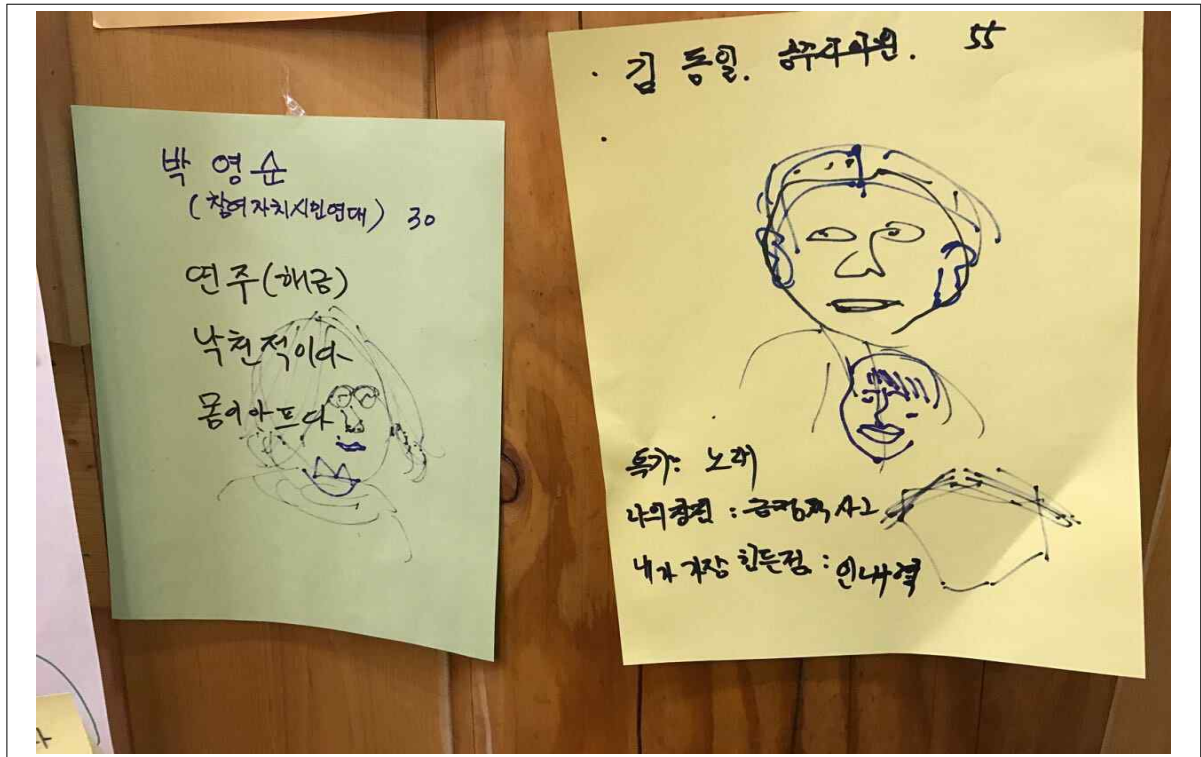 박 영 순
(참여자치시민연대) 30
연주(해금)
낙천적이다
몸이아프다
김 동일. 공주시의원. 55
특기: 노래
나의장점 : 긍정적 사고
내가 가장 힘든점 : 인내력